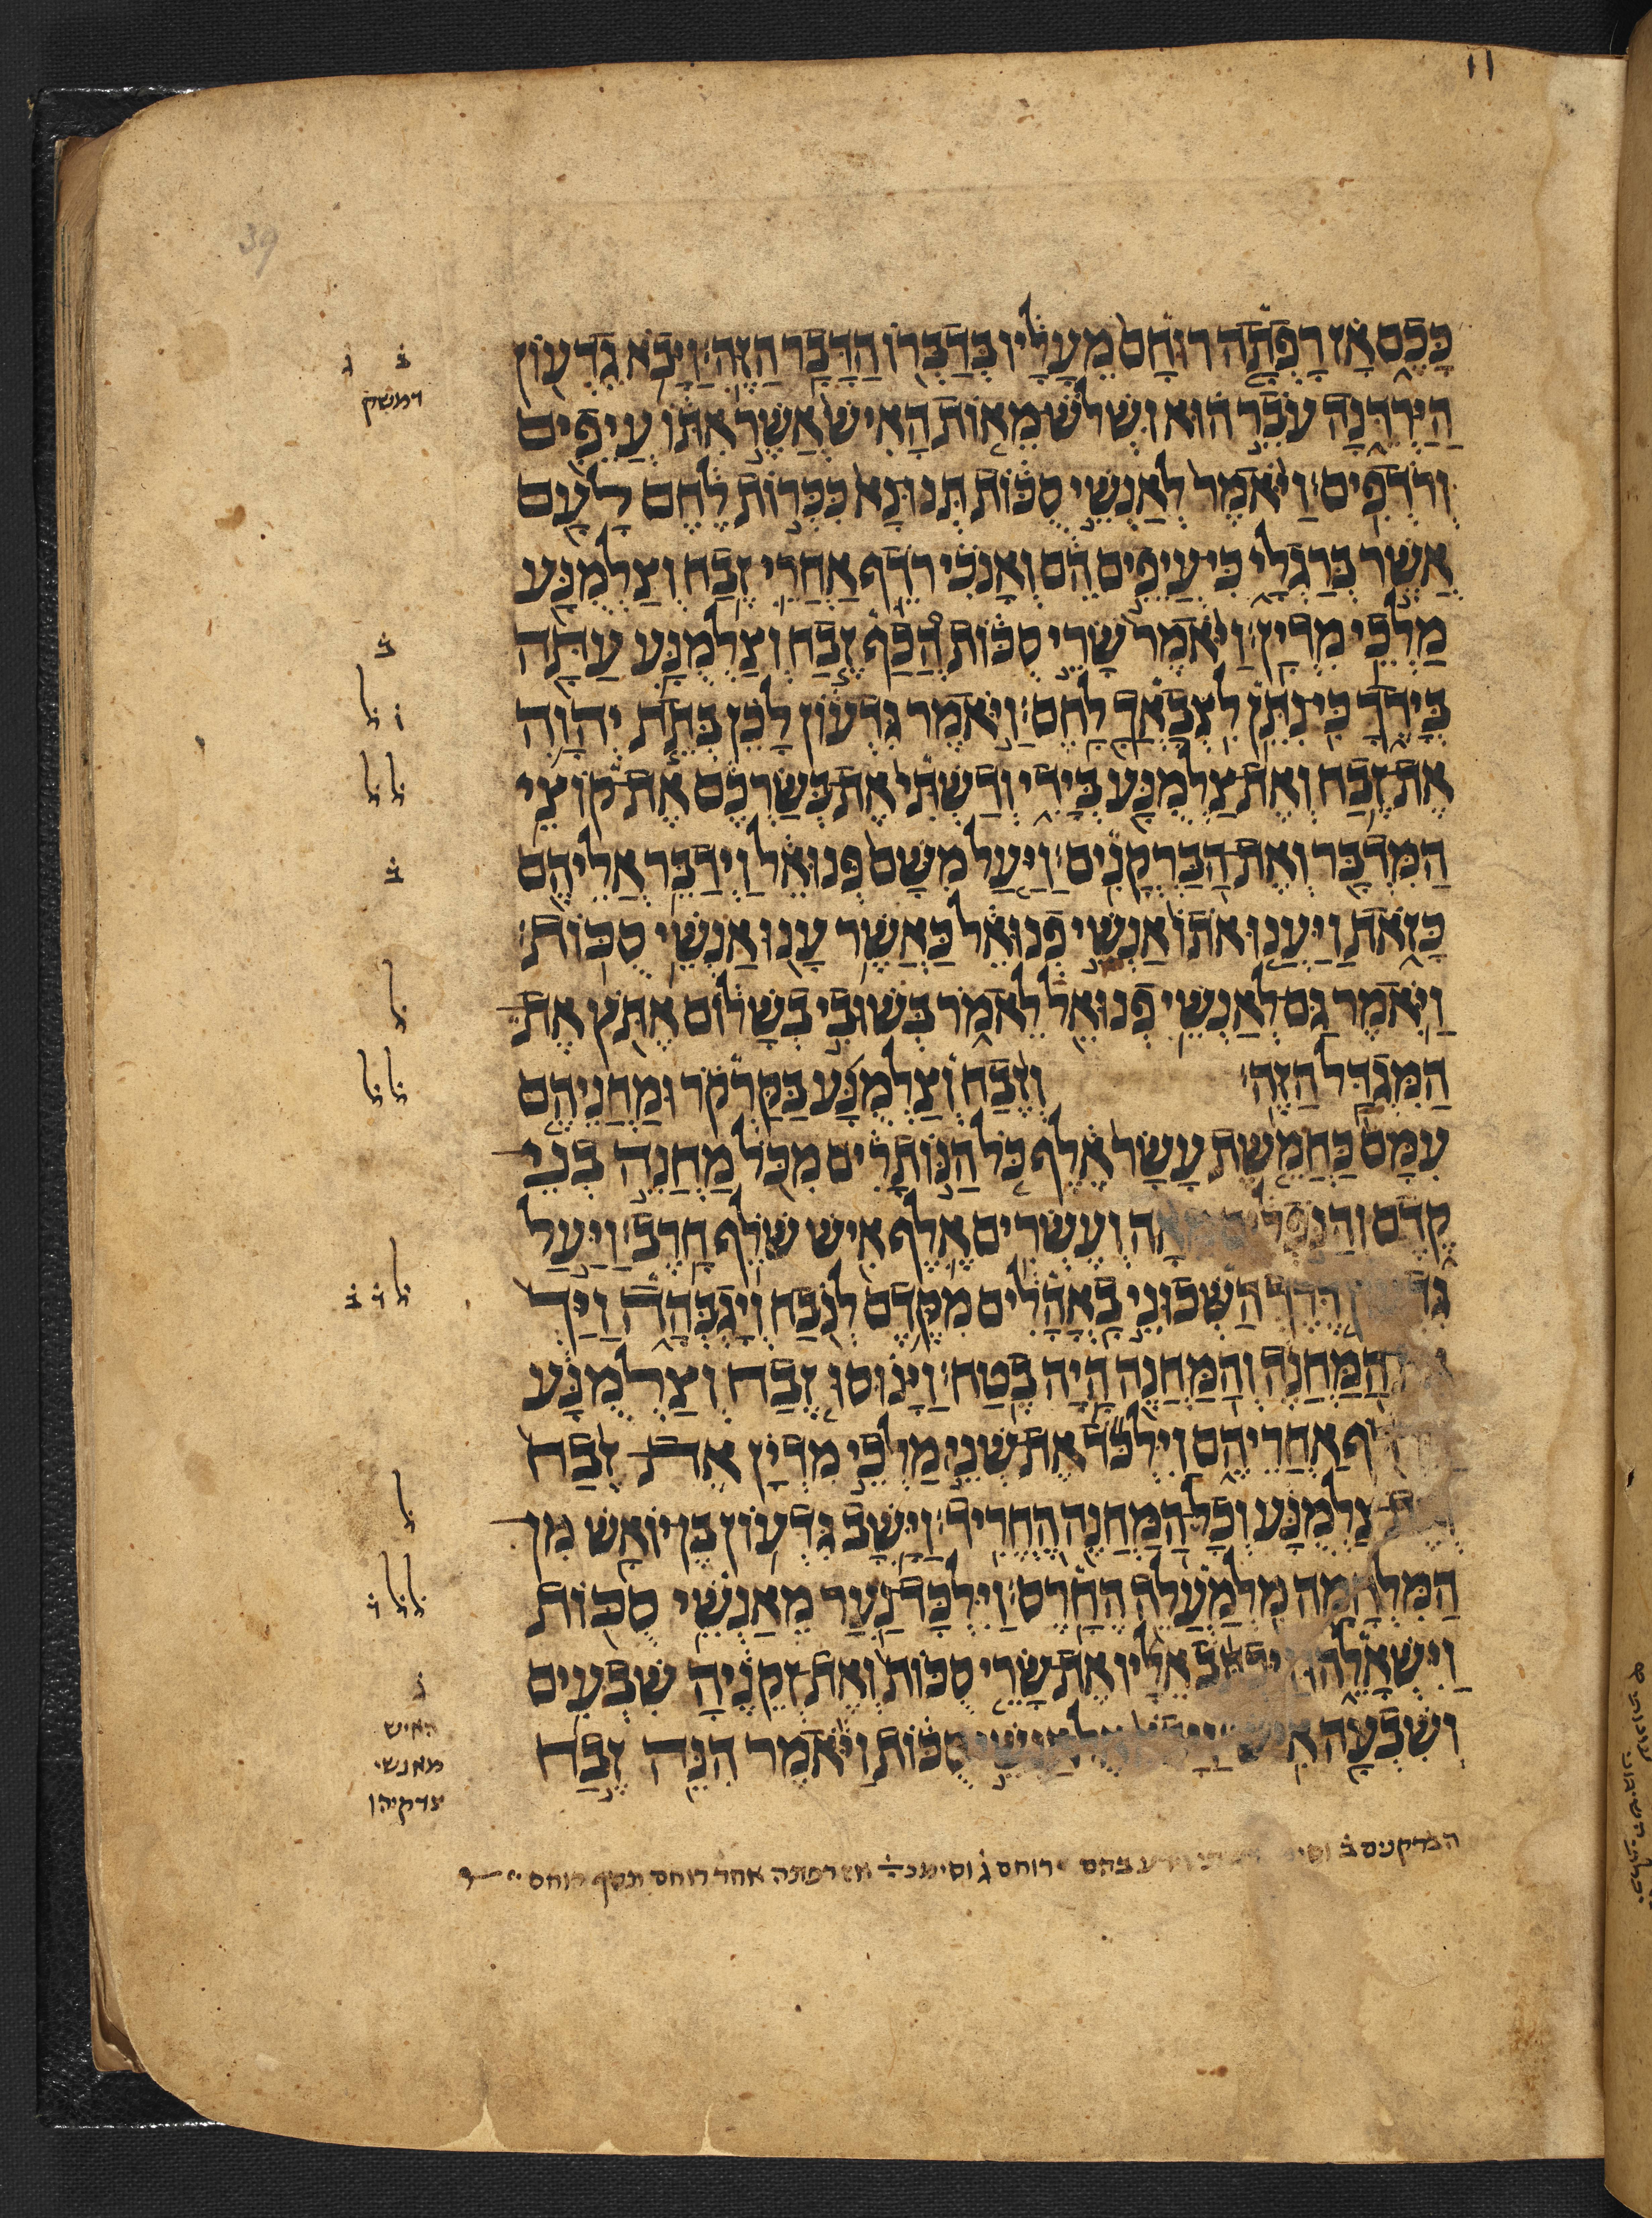 11
39
כָּכֶם אָז רָפְתָה רוּחָם מֵעָלָיו בְּדַבְּרוֹ הַדָּבָר הַזֶּה׃ וַיָּבֹא גִדְעוֹן
ב̇ ג̇
דמשק
הַיַּרְדֵּנָה עֹבֵר הוּא וּשְׁלֹשׁ מֵאוֹת הָאִישׁ אֲשֶׁר אִתּוֹ עֲיֵפִים
וְרֹדְפִים׃ וַיֹּאמֶר לְאַנְשֵׁי סֻכּוֹת תְּנוּ נָא כִּכְּרוֹת לֶחֶם לָעָם
אֲשֶׁר בְּרַגְלָי כִּי עֲיֵפִים הֵם וְאָנֹכִי רֹדֵף אַחֲרֵי זֶבַח וְצַלְמֻנָּע
מַלְכֵי מִדְיָן׃ וַיֹּאמֶר שָׂרֵי סֻכּוֹת הֲכַף זֶבַח וְצַלְמֻנָּע עַתָּה
ב̇
בְּיָדֶךָ כִּי נִתֵּן לִצְבָאֲךָ לָחֶם׃ וַיֹּאמֶר גִּדְעוֹן לָכֵן בְּתֵת יְהוָה
ו̇ ל̇
אֶת זֶבַח וְאֶת צַלְמֻנָּע בְּיָדִי וְדַשְׁתִּי אֶת בְּשַׂרְכֶם אֶת קוֹצֵי
ל̇ ל̇
הַמִּדְבָּר וְאֶת הַבַּרְקֳנִים׃ וַיַּעַל מִשָּׁם פְּנוּאֵל וַיְדַבֵּר אֲלֵיהֶם
ב̇
כָּזֹאת וַיַּעֲנוּ אֹתוֹ אַנְשֵׁי פְנוּאֵל כַּאֲשֶׁר עָנוּ אַנְשֵׁי סֻכּוֹת׃
וַיֹּאמֶר גַּם לְאַנְשֵׁי פְנוּאֵל לֵאמֹר בְּשׁוּבִי בְשָׁלוֹם אֶתֹּץ אֶת
ל̇
הַמִּגְדָּל הַזֶּה׃ וְזֶבַח וְצַלְמֻנָּע בַּקַּרְקֹר וּמַחֲנֵיהֶם
ל̇ ל̇
עִמָּם כַּחֲמֵשֶׁת עָשָׂר אֶלֶף כֹּל הַנּוֹתָרִים מִכֹּל מַחֲנֵה בְנֵי
קֶדֶם וְהַנֹּפְלִים מֵאָה וְעֶשְׂרִים אֶלֶף אִישׁ שֹׁלֵף חָרֶב׃ וַיַּעַל
דֶּרֶךְ הַשְּׁכוּנֵי בָאֳהָלִים מִקֶּדֶם לְנֹבַח וְיָגְבְּהָה וַיַּךְ
ל̇ ד̇ ב̇
הַמַּחֲנֶה וְהַמַּחֲנֶה הָיָה בֶטַח׃ וַיָּנוּסוּ זֶבַח וְצַלְמֻנָּע
אַחֲרֵיהֶם וַיִּלְכֹּד אֶת שְׁנֵי מַלְכֵי מִדְיָן אֶת זֶבַח
צַלְמֻנָּע וְכָל הַמַּחֲנֶה הֶחֱרִיד׃ וַיָּשָׁב גִּדְעוֹן בֶּן יוֹאָשׁ מִן
ל̇
הַמִּלְחָמָה מִלְמַעֲלֵה הֶחָרֶס׃ וַיִּלְכָּד נַעַר מֵאַנְשֵׁי סֻכּוֹת
ל̇ ל̇ ד̇
וַיִּשְׁאָלֵהוּ וַיִּכְתֹּב אֵלָיו אֶת שָׂרֵי סֻכּוֹת וְאֶת זְקֵנֶיהָ שִׁבְעִים
ג̇
וְשִׁבְעָה אִישׁ אַנְשֵׁי סֻכּוֹת וַיֹּאמֶר הִנֵּה זֶבַח
האיש
מאנשי
צדקיהו
הברקנים ב̇ וסי
בהם רוחם ג̇ וסימנ אז רפתה אחד רוחם תסף רוחם